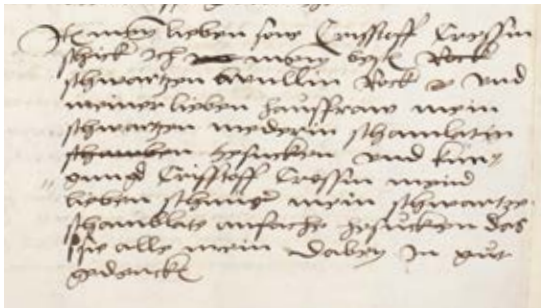 Jt(em) mey(nem) lieben sone Cristoff Cressin
schick Jch mey(n) beste Rock
schwartzen wullin Rock und
meiner lieben hausfraw mein
schwartzen mederin schamlotin
gesucken und kun
gund Cristoff Cressin meind
lieben schnur mein schwartze
schamblate anfache gesucken das
sie alle mein dabey Jn gut
gedenck